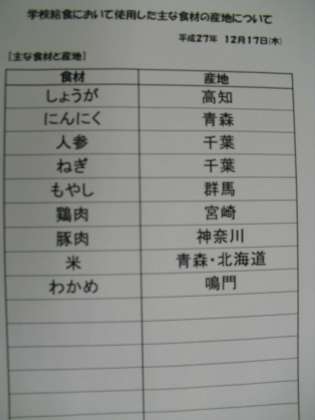 学校給食において使用した主な食材の産地について
平成27年 12月17日(木)
[主な食材と産地]
食材 産地
しょうが 高知
にんにく 青森
人参 千葉
ねぎ 千葉
もやし 群馬
鶏肉 宮崎
豚肉 神奈川
米 青森・北海道
わかめ 鳴門